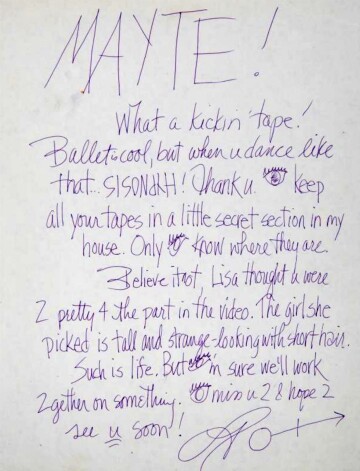 MAYTE!
What a kickin' tape!
Ballet is cool, but when u dance like
that... SISOSNHH! Thank u. 👁 keep
all your tapes in a little secret section in my
house. Only 👁 know where they are.
Believe it or not, Lisa thought u were
2 pretty 4 the part in the video. The girl she
picked is tall and strange-looking with short hair.
Such is life. But 👁'm sure we'll work
2gether on something. 👁 miss u 2 & hope 2
see u soon!